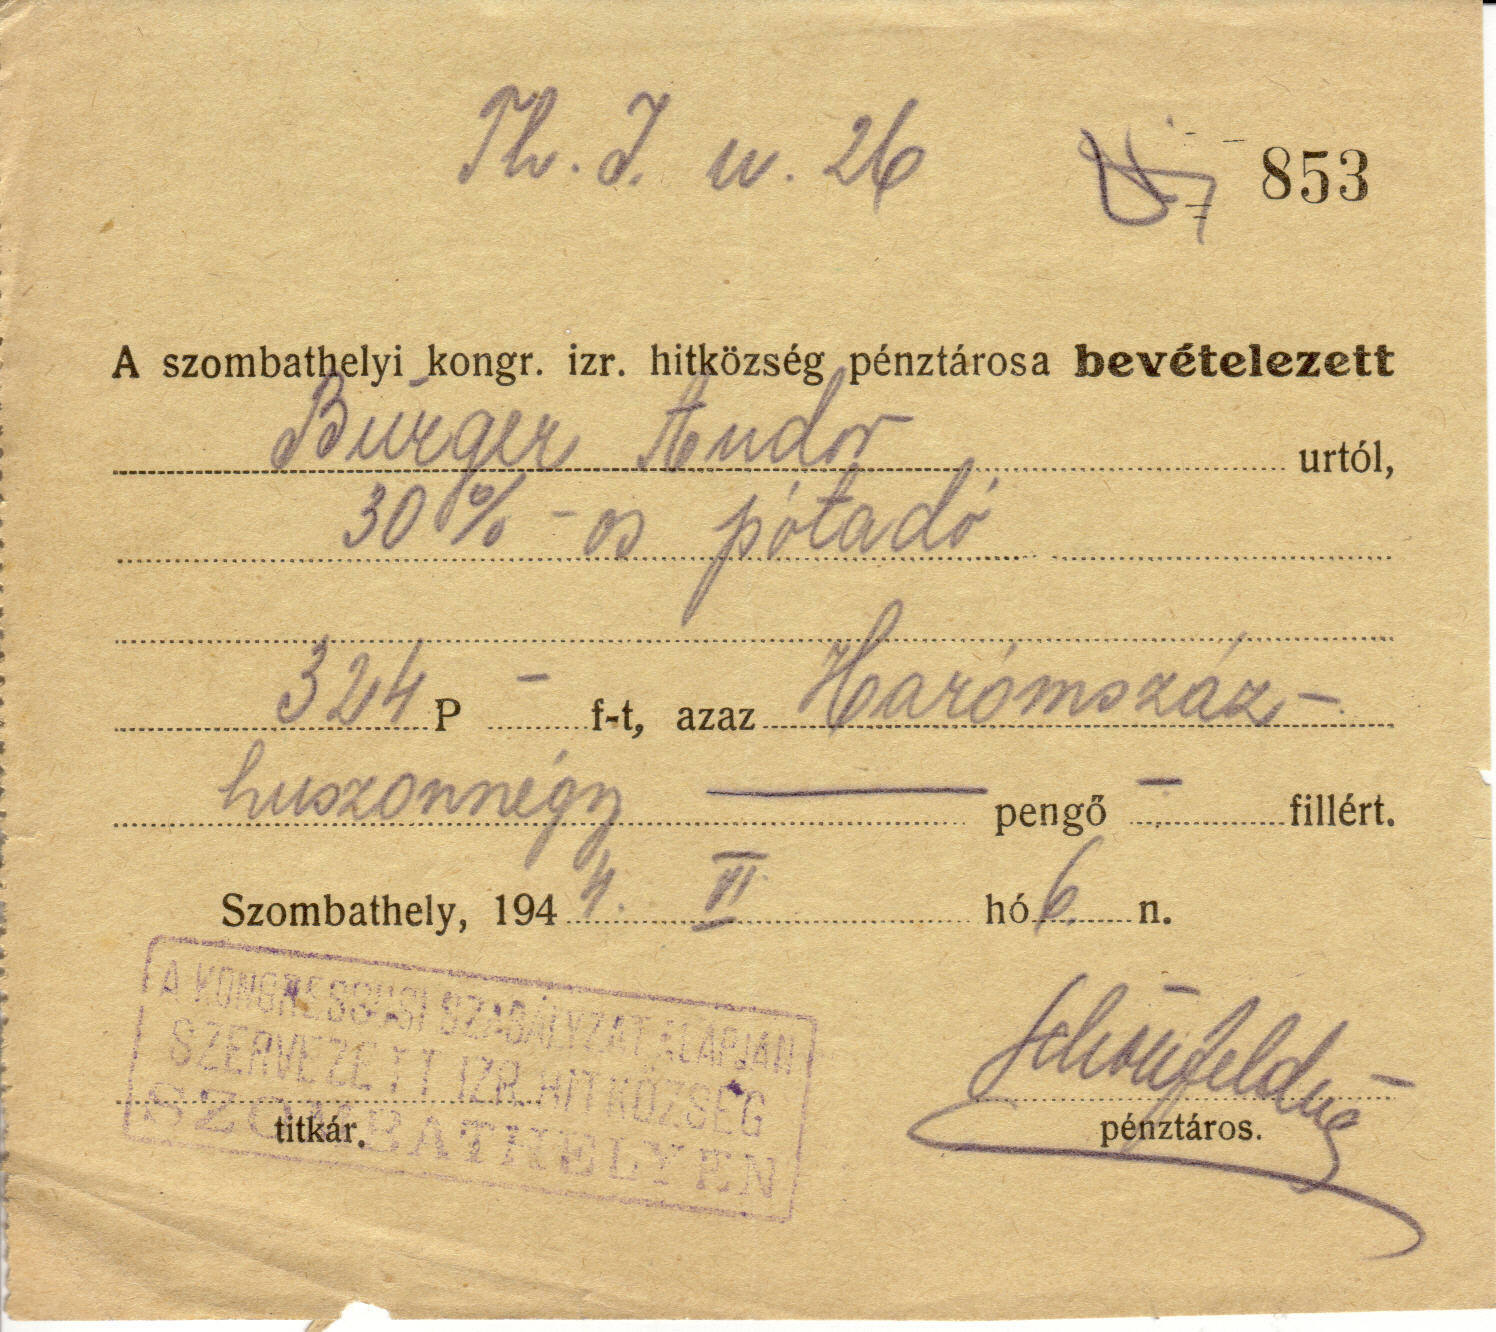 Th. I. u. 26
853
A szombathelyi kongr. izr. hitközség pénztárosa bevételezett
Burger Andor urtól,
30 % - os pótadó
324 P - f-t, azaz Harómszáz-
huszonnégy — pengő - fillért.
Szombathely, 194 4. VI hó 6 n.
A KONGRESSUSI SZABÁLYZAT ALAPJÁN
SZERVEZETT IZR. HITKÖZSÉG
SZOMBATHELYEN
titkár.
Schönfeldné
pénztáros.